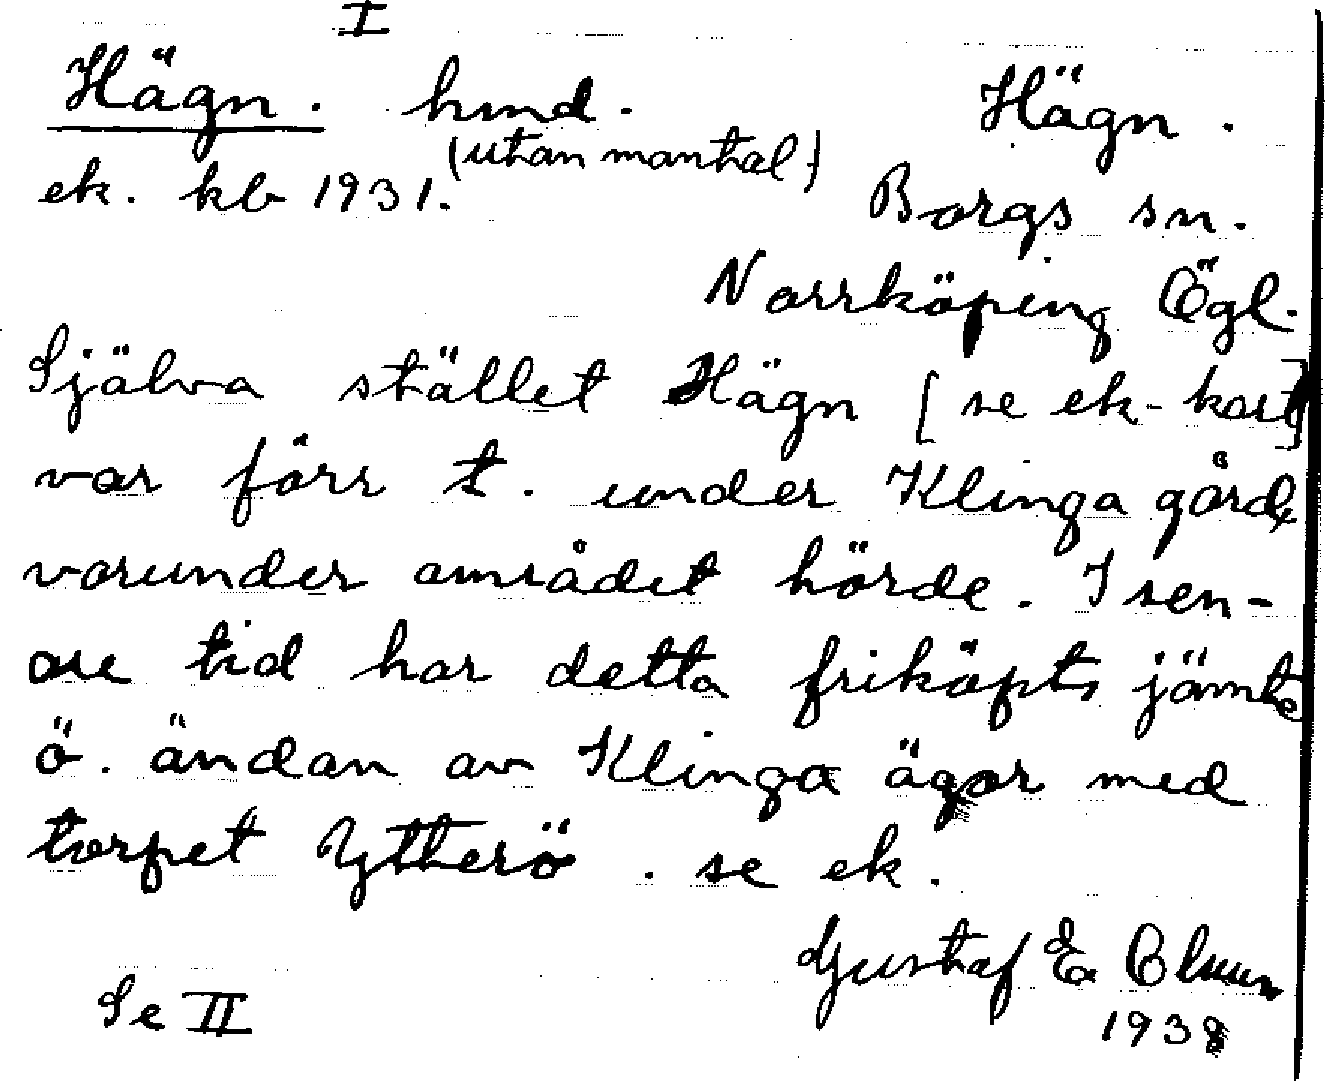 I
Hägn. hmd. Hägn.
(utan mantal)
ek. kb 1931. Borgs sn.
Norrköping Ögl.
Själva stället Hägn [se ek-kort]
var förr t. under Klinga gård,
varunder området hörde. I sen-
are tid har detta friköpts jämte
ö. ändan av Klinga ägor med
torpet Ytterö. se ek.
Gustaf E
Se II 1938